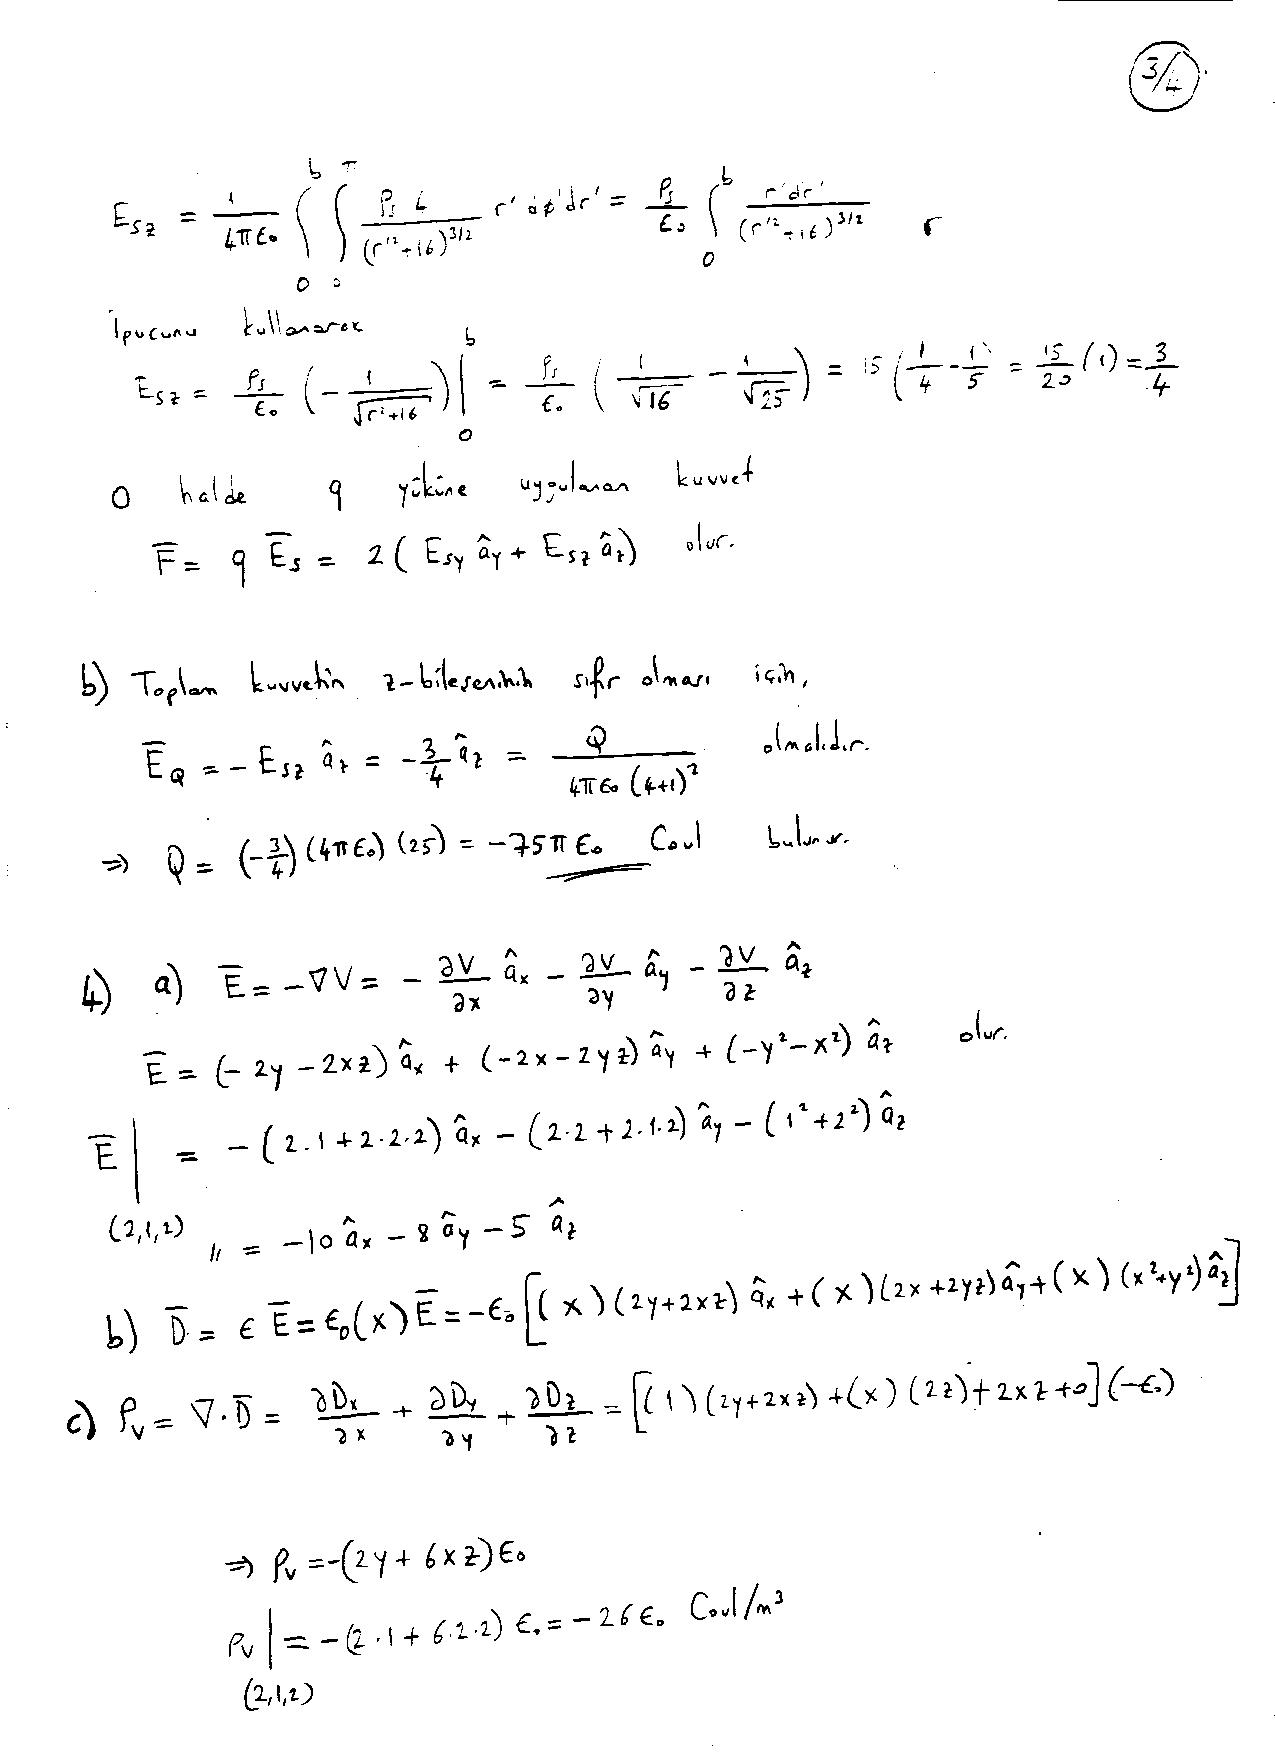 3/4
E_sz = 1/(4πε₀) ∫₀^b ∫₀^π ρs 4 / (r'² + 16)^3/2 r' dφ' dr' = ρs/ε₀ ∫₀^b r' dr' / (r'² + 16)^3/2 r
İpucunu kullanarak
E_sz = ρs/ε₀ (- 1/√(r²+16)) |₀^b = ρs/ε₀ (1/√16 - 1/√25) = 15 (1/4 - 1/5) = 15/20 (1) = 3/4
O halde q yüküne uygulanan kuvvet
F̄ = q Ē_s = 2 ( E_sy â_y + E_sz â_z ) olur.
b) Toplam kuvvetin z-bileşeninin sıfır olması için,
Ē_Q = - E_sz â_z = - 3/4 â_z = Q / (4πε₀ (4+1)²) olmalıdır.
⇒ Q = (- 3/4) (4πε₀) (25) = - 75πε₀ Coul bulunur.
4) a) Ē = - ∇V = - ∂V/∂x â_x - ∂V/∂y â_y - ∂V/∂z â_z
Ē = (- 2y - 2xz) â_x + (- 2x - 2yz) â_y + (- y² - x²) â_z olur.
Ē | (2,1,2) = - (2.1 + 2.2.2) â_x - (2.2 + 2.1.2) â_y - (1² + 2²) â_z
" = - 10 â_x - 8 â_y - 5 â_z
b) D̄ = ε Ē = ε₀(x) Ē = - ε₀ [(x)(2y + 2xz) â_x + (x)(2x + 2yz) â_y + (x)(x² + y²) â_z]
c) ρ_v = ∇ · D̄ = ∂D_x/∂x + ∂D_y/∂y + ∂D_z/∂z = [(1)(2y + 2xz) + (x)(2z) + 2xz + 0] (-ε₀)
⇒ ρ_v = -(2y + 6xz) ε₀
ρ_v | (2,1,2) = - (2.1 + 6.2.2) ε₀ = - 26 ε₀ Coul/m³